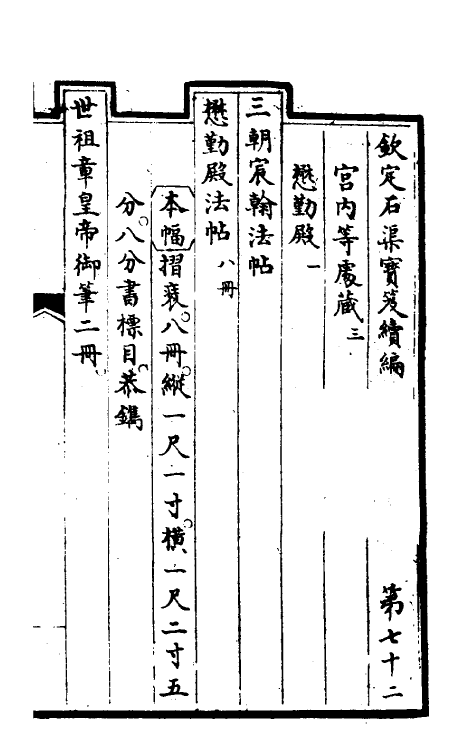 欽定石渠寶笈續編 第七十二
宮內等處藏三
懋勤殿一
三朝宸翰法帖
懋勤殿法帖八冊
本幅摺裝。八冊。縱一尺一寸。橫一尺二寸五
分。八分書標目。恭鐫
世祖章皇帝御筆二冊。